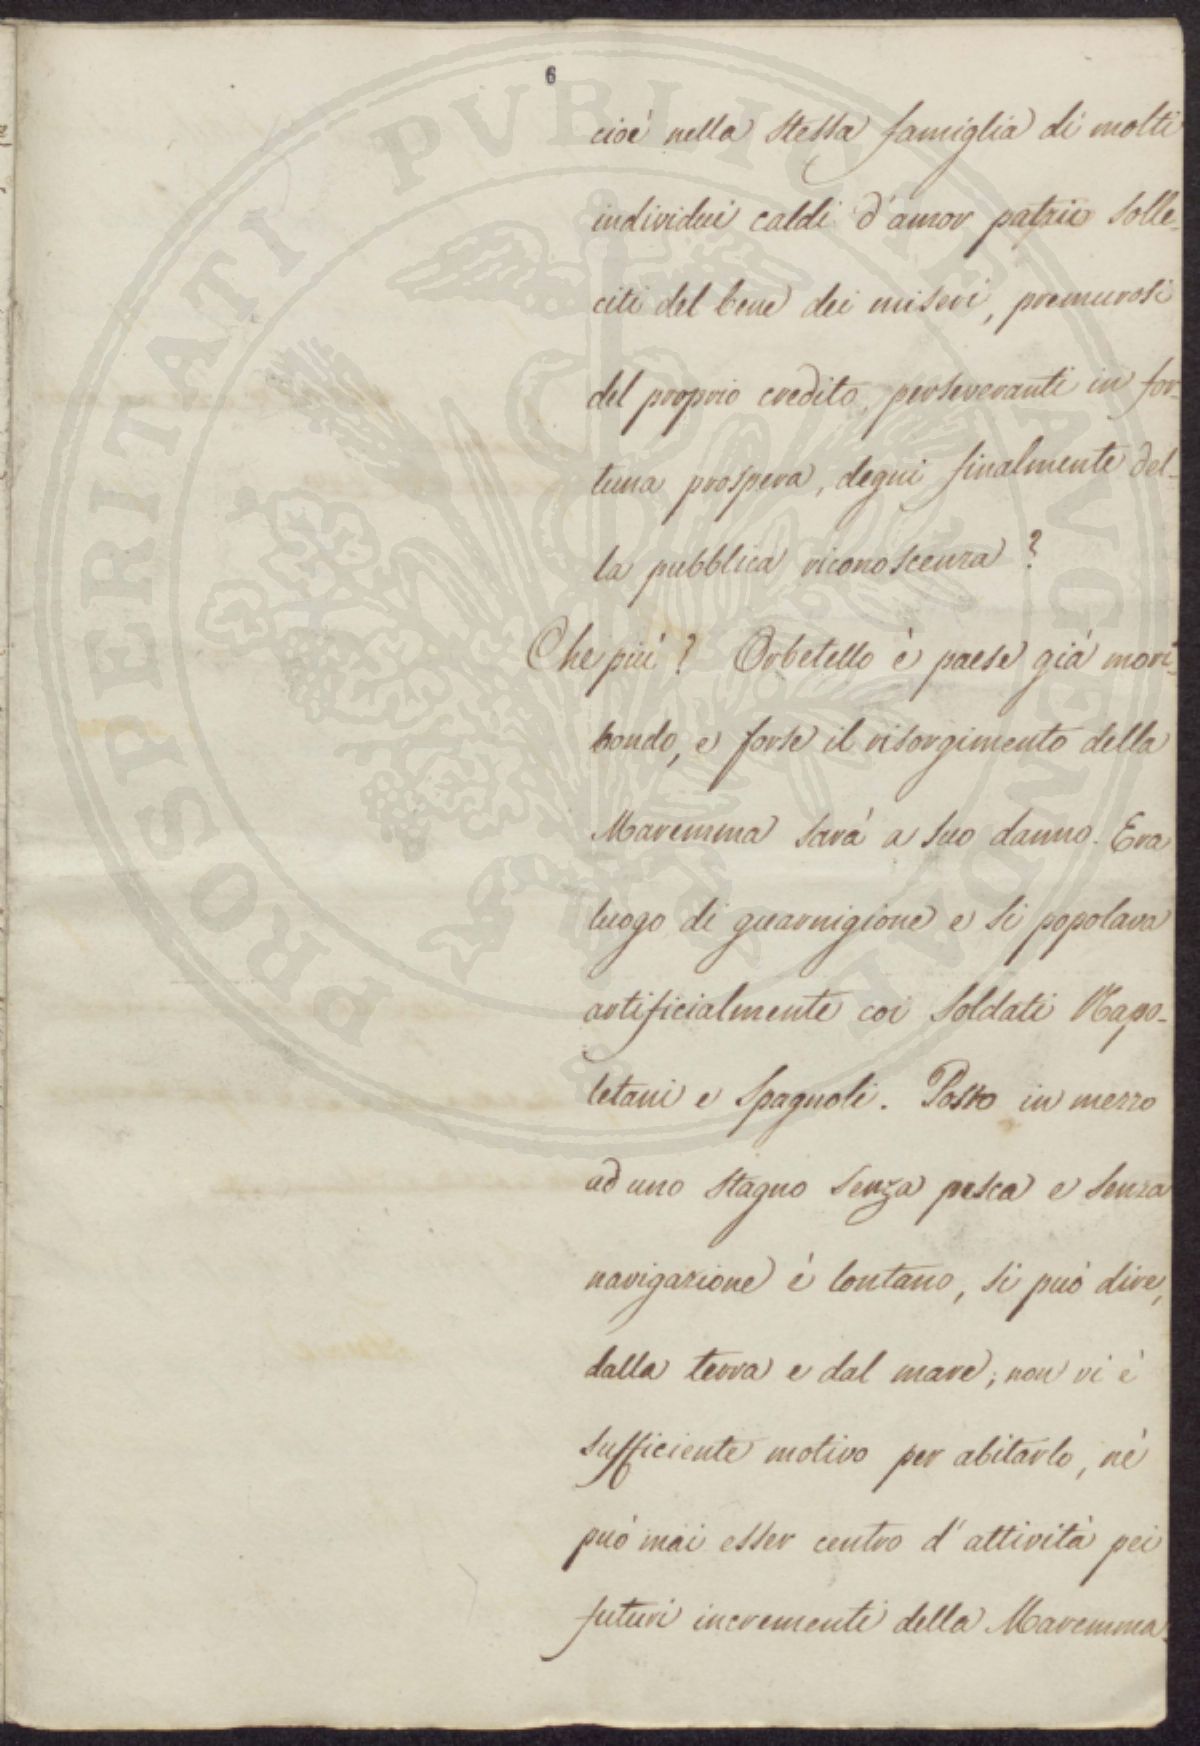 6
cioè nella stessa famiglia di molti
individui caldi d'amor patrio solle-
citi del bene dei miseri, premurosi
del proprio credito, perseveranti in for-
tuna prospera, degni finalmente del-
la pubblica riconoscenza?
Che più? Orbetello è paese già mori-
bondo, e forse il risorgimento della
Maremma sarà a suo danno. Era
luogo di guarnigione e si popolava
artificialmente coi Soldati Napo-
letani e Spagnoli. Posto in mezzo
ad uno stagno senza pesca e senza
navigazione è lontano, si può dire,
dalla terra e dal mare; non vi è
sufficiente motivo per abitarlo, nè
può mai esser centro d'attività pei
futuri incrementi della Maremma.
PROSPERITATI PVBLICAE AVGENDAE